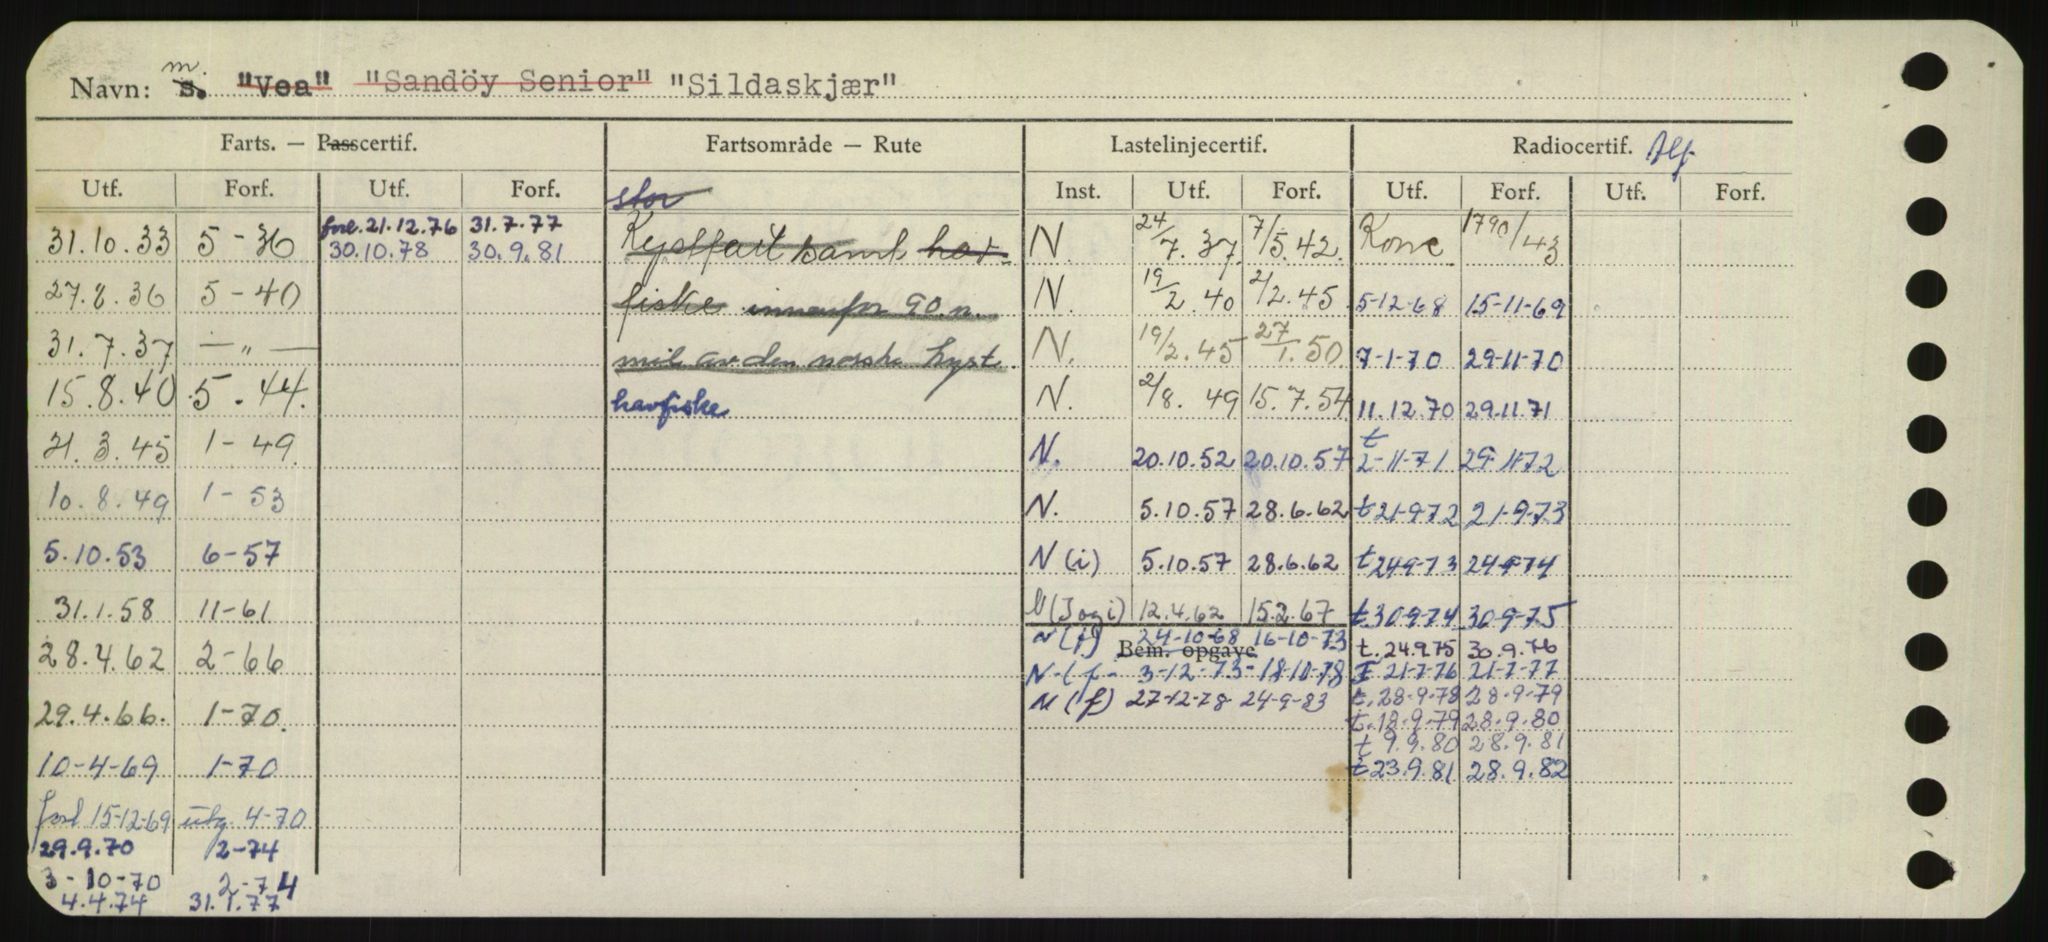 Navn: m. s. "Vea" "Sandöy Senior" "Sildaskjær"
Farts. — Passcertif. Fartsområde — Rute Lastelinjecertif. Radiocertif. Tlf.
Utf. Forf. Utf. Forf. Inst. Utf. Forf. Utf. Forf. Utf. Forf.
stor
forl. 21.12.76 31.7.77
31.10.33 5-36 30.10.78 30.9.81 Kystfart samt hav- N. 24/7.37 7/5.42 1790/43
27.8.36 5-40 fiske innenfor 90 n. N. 19/2.40 2/2.45 5-12-68 15-11-69
31.7.37 —„— mil av den norske kyst. N. 19/2.45 27/1.50 7-1-70 29-11-70
15.8.40 5.44. havfiske N. 2/8.49 15.7.54 11.12.70 29.11.71
21.3.45 1-49 N. 20.10.52 20.10.57 t 2-11-71 29-11-72
10.8.49 1-53 N. 5.10.57 28.6.62 t 21-9-72 21-9-73
5.10.53 6-57 N(i) 5.10.57 28.6.62 t 24-9-73 24-9-74
31.1.58 11-61 12.4.62 15.2.67 t. 30-9-74 30-9-75
N(f) 24-10-68 16-10-73
28.4.62 2-66 Bem. opgave t. 24.9.75 30.9.76
N-(f- 3-12-73- 18-10-78 t 21-7-76 21-7-77
29.4.66. 1-70. N(f) 27-12-78 24-9-83 t. 28-9-78 28-9-79
t. 18-9-79 28.9.80
10-4-69 1-70 t 9.9.80 28.9.81
t 23.9.81 28.9.82
forl 15-12-69 utg. 4-70
29.9.70 2-74
3-10-70 2-74
4.4.74 31.1.77